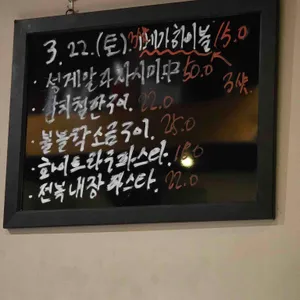 3. 22. (토). 메가하이볼 15.0
· 성게알과 사시미 50.0
3샷.
22.0
· 불불락 소금구이. 25.0
· 화이트라구파스타. 18.0
· 전복내장파스타. 22.0